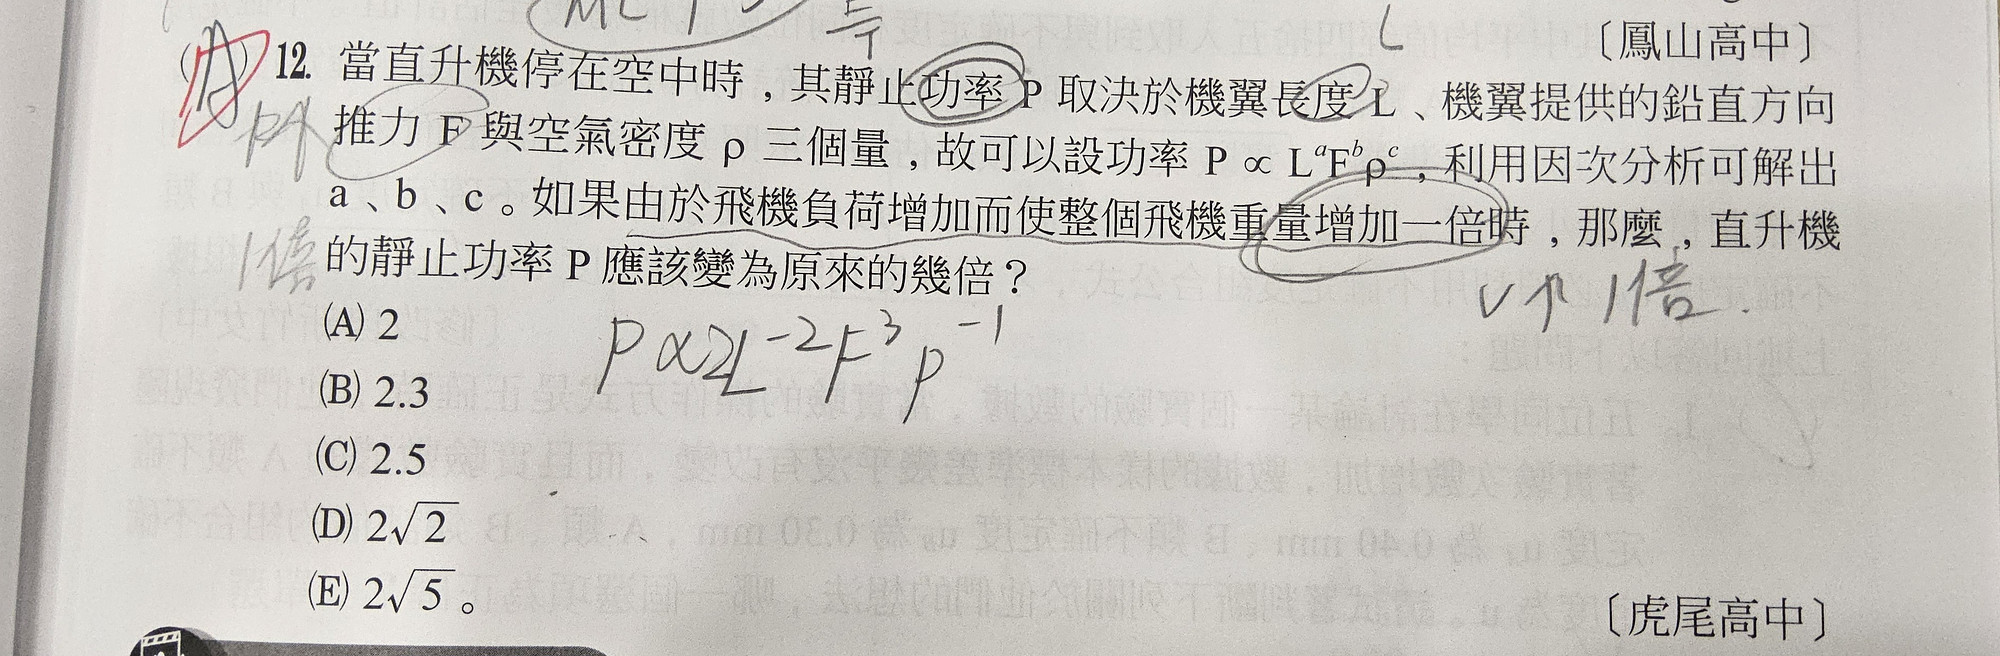 〔鳳山高中〕
(A) 12. 當直升機停在空中時，其靜止功率 P 取決於機翼長度 L、機翼提供的鉛直方向
推力 F 與空氣密度 ρ 三個量，故可以設功率 P ∝ LᵃFᵇρᶜ，利用因次分析可解出
a、b、c。如果由於飛機負荷增加而使整個飛機重量增加一倍時，那麼，直升機
1倍 的靜止功率 P 應該變為原來的幾倍？
V↑ 1倍.
(A) 2
P∝2L⁻²F³ρ⁻¹
(B) 2.3
(C) 2.5
(D) 2√2
(E) 2√5。
〔虎尾高中〕